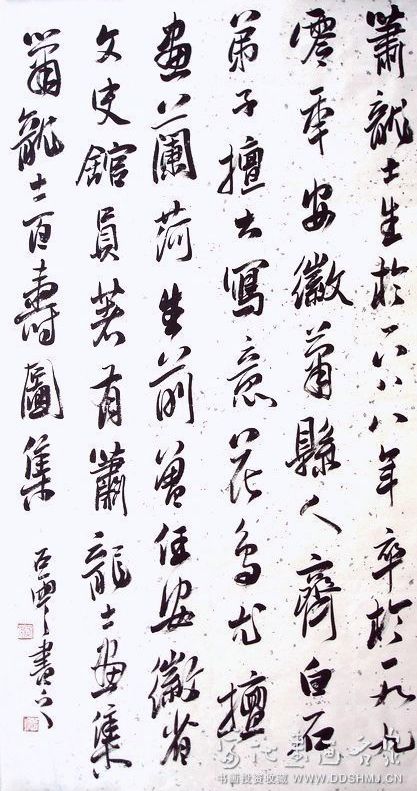 蕭龍士生於一八八八年卒於一九九
零年安徽蕭縣人齊白石
弟子擅大寫意花鳥尤擅
畫蘭荷生前曾任安徽省
文史館員著有蕭龍士畫集
蕭龍士百壽圖集
書
书画投资收藏 WWW.DDSHMJ.COM